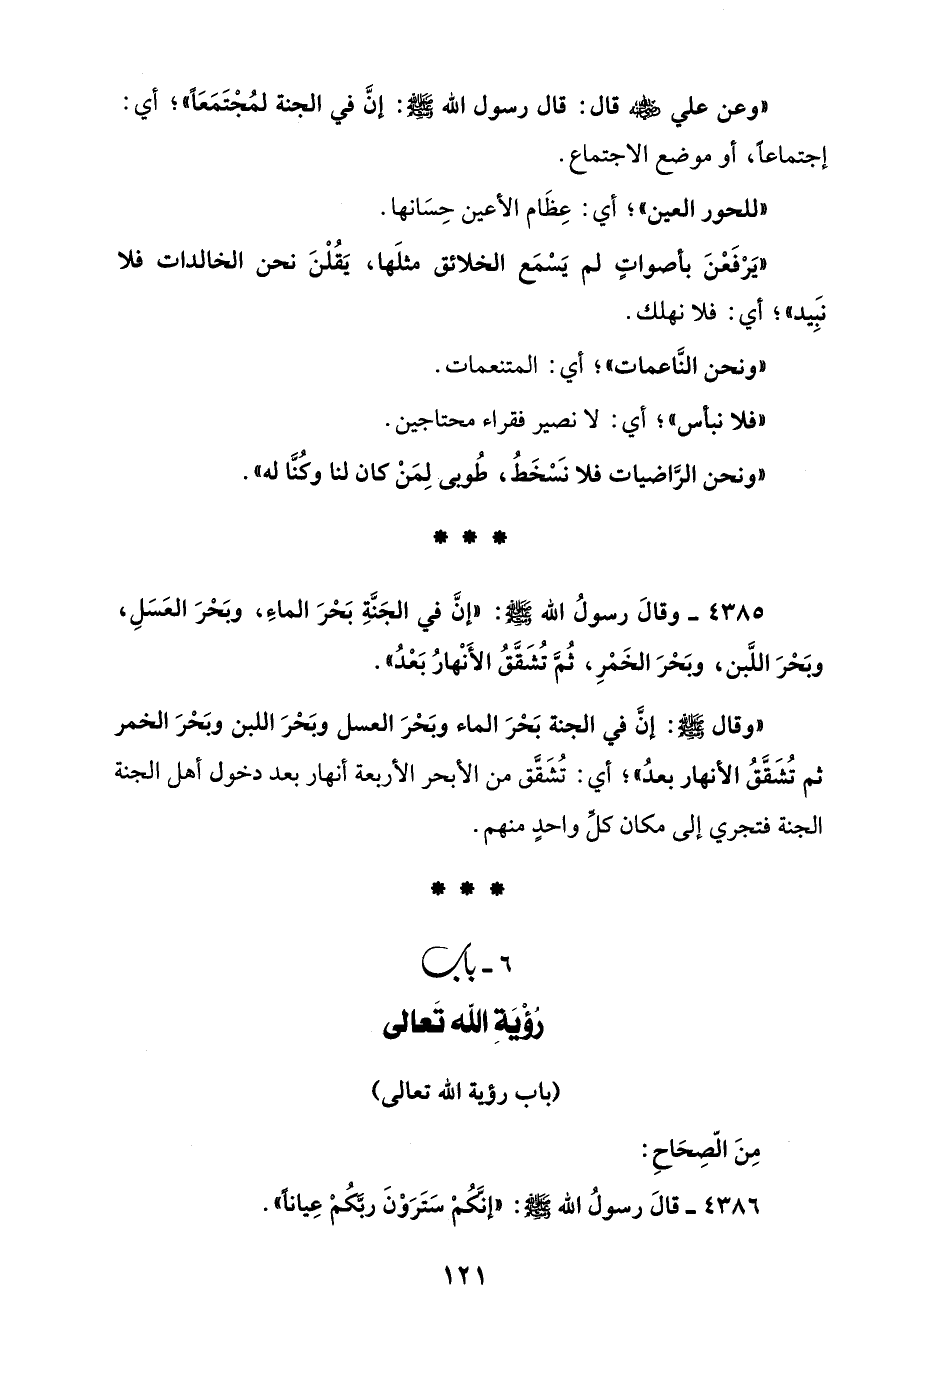 «وعن علي ﷺ قال: قال رسول الله ﷺ: إنَّ في الجنة لمُجْتَمَعَاً»؛ أي:
إجتماعاً، أو موضع الاجتماع.
«للحور العين»؛ أي: عِظَام الأعين حِسَانها.
«يَرْفَعْنَ بأصواتٍ لم يَسْمَع الخلائق مثلَها، يَقُلْنَ نحن الخالدات فلا
نَبِيد»؛ أي: فلا نهلك.
«ونحن النَّاعمات»؛ أي: المتنعمات.
«فلا نبأس»؛ أي: لا نصير فقراء محتاجين.
«ونحن الرَّاضيات فلا نَسْخَطُ، طُوبى لِمَنْ كان لنا وكُنَّا له».
* * *
٤٣٨٥ ـ وقالَ رسولُ الله ﷺ: «إنَّ في الجَنَّةِ بَحْرَ الماءِ، وبَحْرَ العَسَلِ،
وبَحْرَ اللَّبن، وبَحْرَ الخَمْرِ، ثُمَّ تُشَقَّقُ الأَنْهارُ بَعْدُ».
«وقال ﷺ: إنَّ في الجنة بَحْرَ الماء وبَحْرَ العسل وبَحْرَ اللبن وبَحْرَ الخمر
ثم تُشَقَّقُ الأنهار بعدُ»؛ أي: تُشَقَّق من الأبحر الأربعة أنهار بعد دخول أهل الجنة
الجنة فتجري إلى مكان كلِّ واحدٍ منهم.
* * *
٦ ـ باب
رُؤْيَةِ اللّه تَعالى
(باب رؤية الله تعالى)
مِنَ الصِّحَاحِ:
٤٣٨٦ ـ قالَ رسولُ الله ﷺ: «إنَّكُمْ سَتَرَوْنَ ربَّكُمْ عِياناً».
١٢١